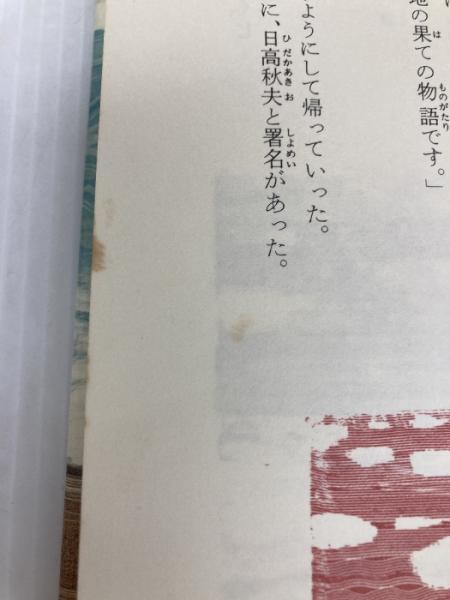 地の果ての物語です。」
ようにして帰っていった。
に、日高秋夫と署名があった。